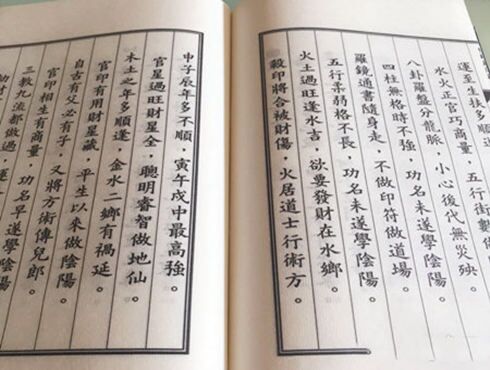 運至生扶多順
水火正官巧商量，五行術數
八卦羅盤分龍脈，小心後代無災殃。
四柱無格時不強，功名未遂學陰陽。
羅鏡通書隨身走，不做印符做道場。
五行柔弱格不長，功名未遂學陰陽。
火土過旺逢水吉，欲要發財在水鄉。
殺印將合被財傷，火居道士行術方。
申子辰年多不順，寅午戌中最高強。
官星過旺財星全，聰明睿智做地仙。
木土之年多順逢，金水二鄉有禍延。
官印有用財星藏，平生以來做陰陽。
自古有父必有子，又將方術傳兒郎。
官印相生有商量，功名早遂學陰陽。
三教九流都做過，運
財